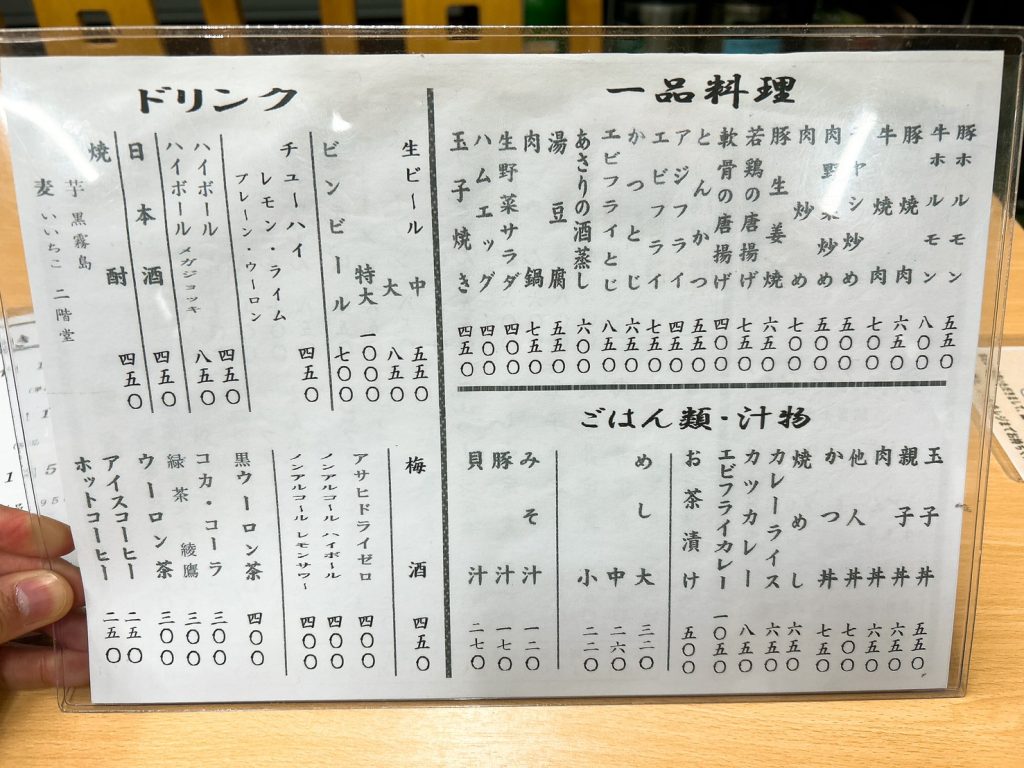 一品料理
豚ホルモン 五五〇
牛ホルモン 八〇〇
豚焼肉 六五〇
牛焼肉 七〇〇
モヤシ炒め 五五〇
肉野菜炒め 五五〇
肉炒め 七〇〇
豚生姜焼 六五〇
若鶏の唐揚げ 七五〇
軟骨の唐揚げ 四〇〇
とんかつ 五五〇
アジフライ 四五〇
エビフライ 七五〇
かつとじ 六五〇
エビフライとじ 八五〇
あさりの酒蒸し 六〇〇
湯豆腐 五五〇
肉鍋 七五〇
生野菜サラダ 四〇〇
ハムエッグ 四〇〇
玉子焼き 四五〇
ごはん類・汁物
玉子丼 五五〇
親子丼 六五〇
肉丼 六五〇
他人丼 七〇〇
かつ丼 七五〇
焼めし 六五〇
カレーライス 六五〇
カツカレー 八五〇
エビフライカレー 一〇五〇
お茶漬け 五〇〇
めし 大 三二〇
中 二六〇
小 二二〇
みそ汁 一二〇
豚汁 一七〇
貝汁 二七〇
ドリンク
生ビール 中 五五〇
大 八五〇
特大 一〇〇〇
ビンビール 七〇〇
チューハイ 四五〇
レモン・ライム
プレーン・ウーロン
ハイボール 四五〇
ハイボール メガジョッキ 八五〇
日本酒 四五〇
焼酎 四五〇
芋 黒霧島
麦 いいちこ 二階堂
梅酒 四五〇
アサヒドライゼロ 四〇〇
ノンアルコール ハイボール 四〇〇
ノンアルコール レモンサワー 四〇〇
黒ウーロン茶 四〇〇
コカ・コーラ 三〇〇
緑茶 綾鷹 三〇〇
ウーロン茶 三〇〇
アイスコーヒー 二五〇
ホットコーヒー 二五〇